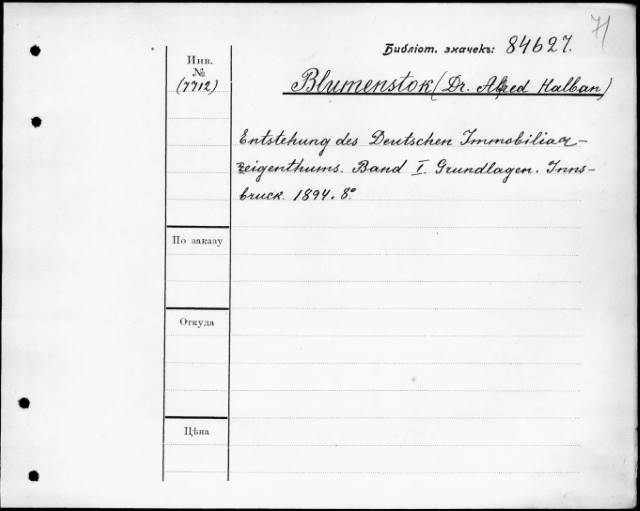 71
Библіот. значекъ: 84627.
Инв.
№
(7712)
Blumenstok (Dr. Alfred Halban)
Entstehung des Deutschen Immobiliar-
eigenthums. Band I. Grundlagen. Inns-
bruck. 1894. 8°.
По заказу
Откуда
Цѣна